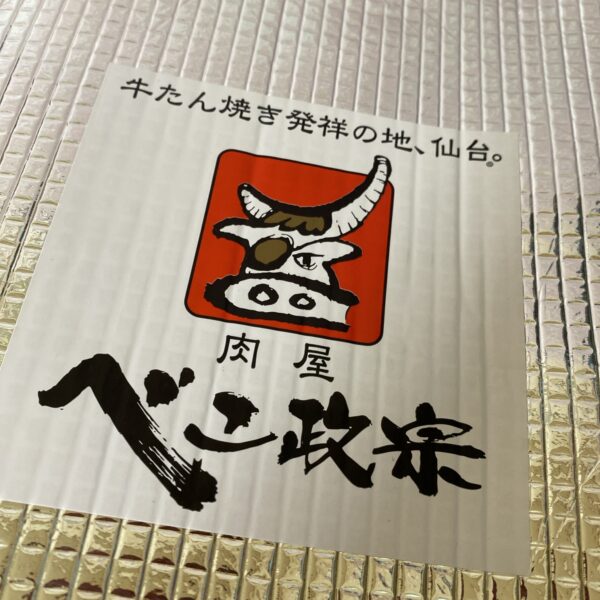 牛たん焼き発祥の地、仙台。®
肉屋
べこ政宗